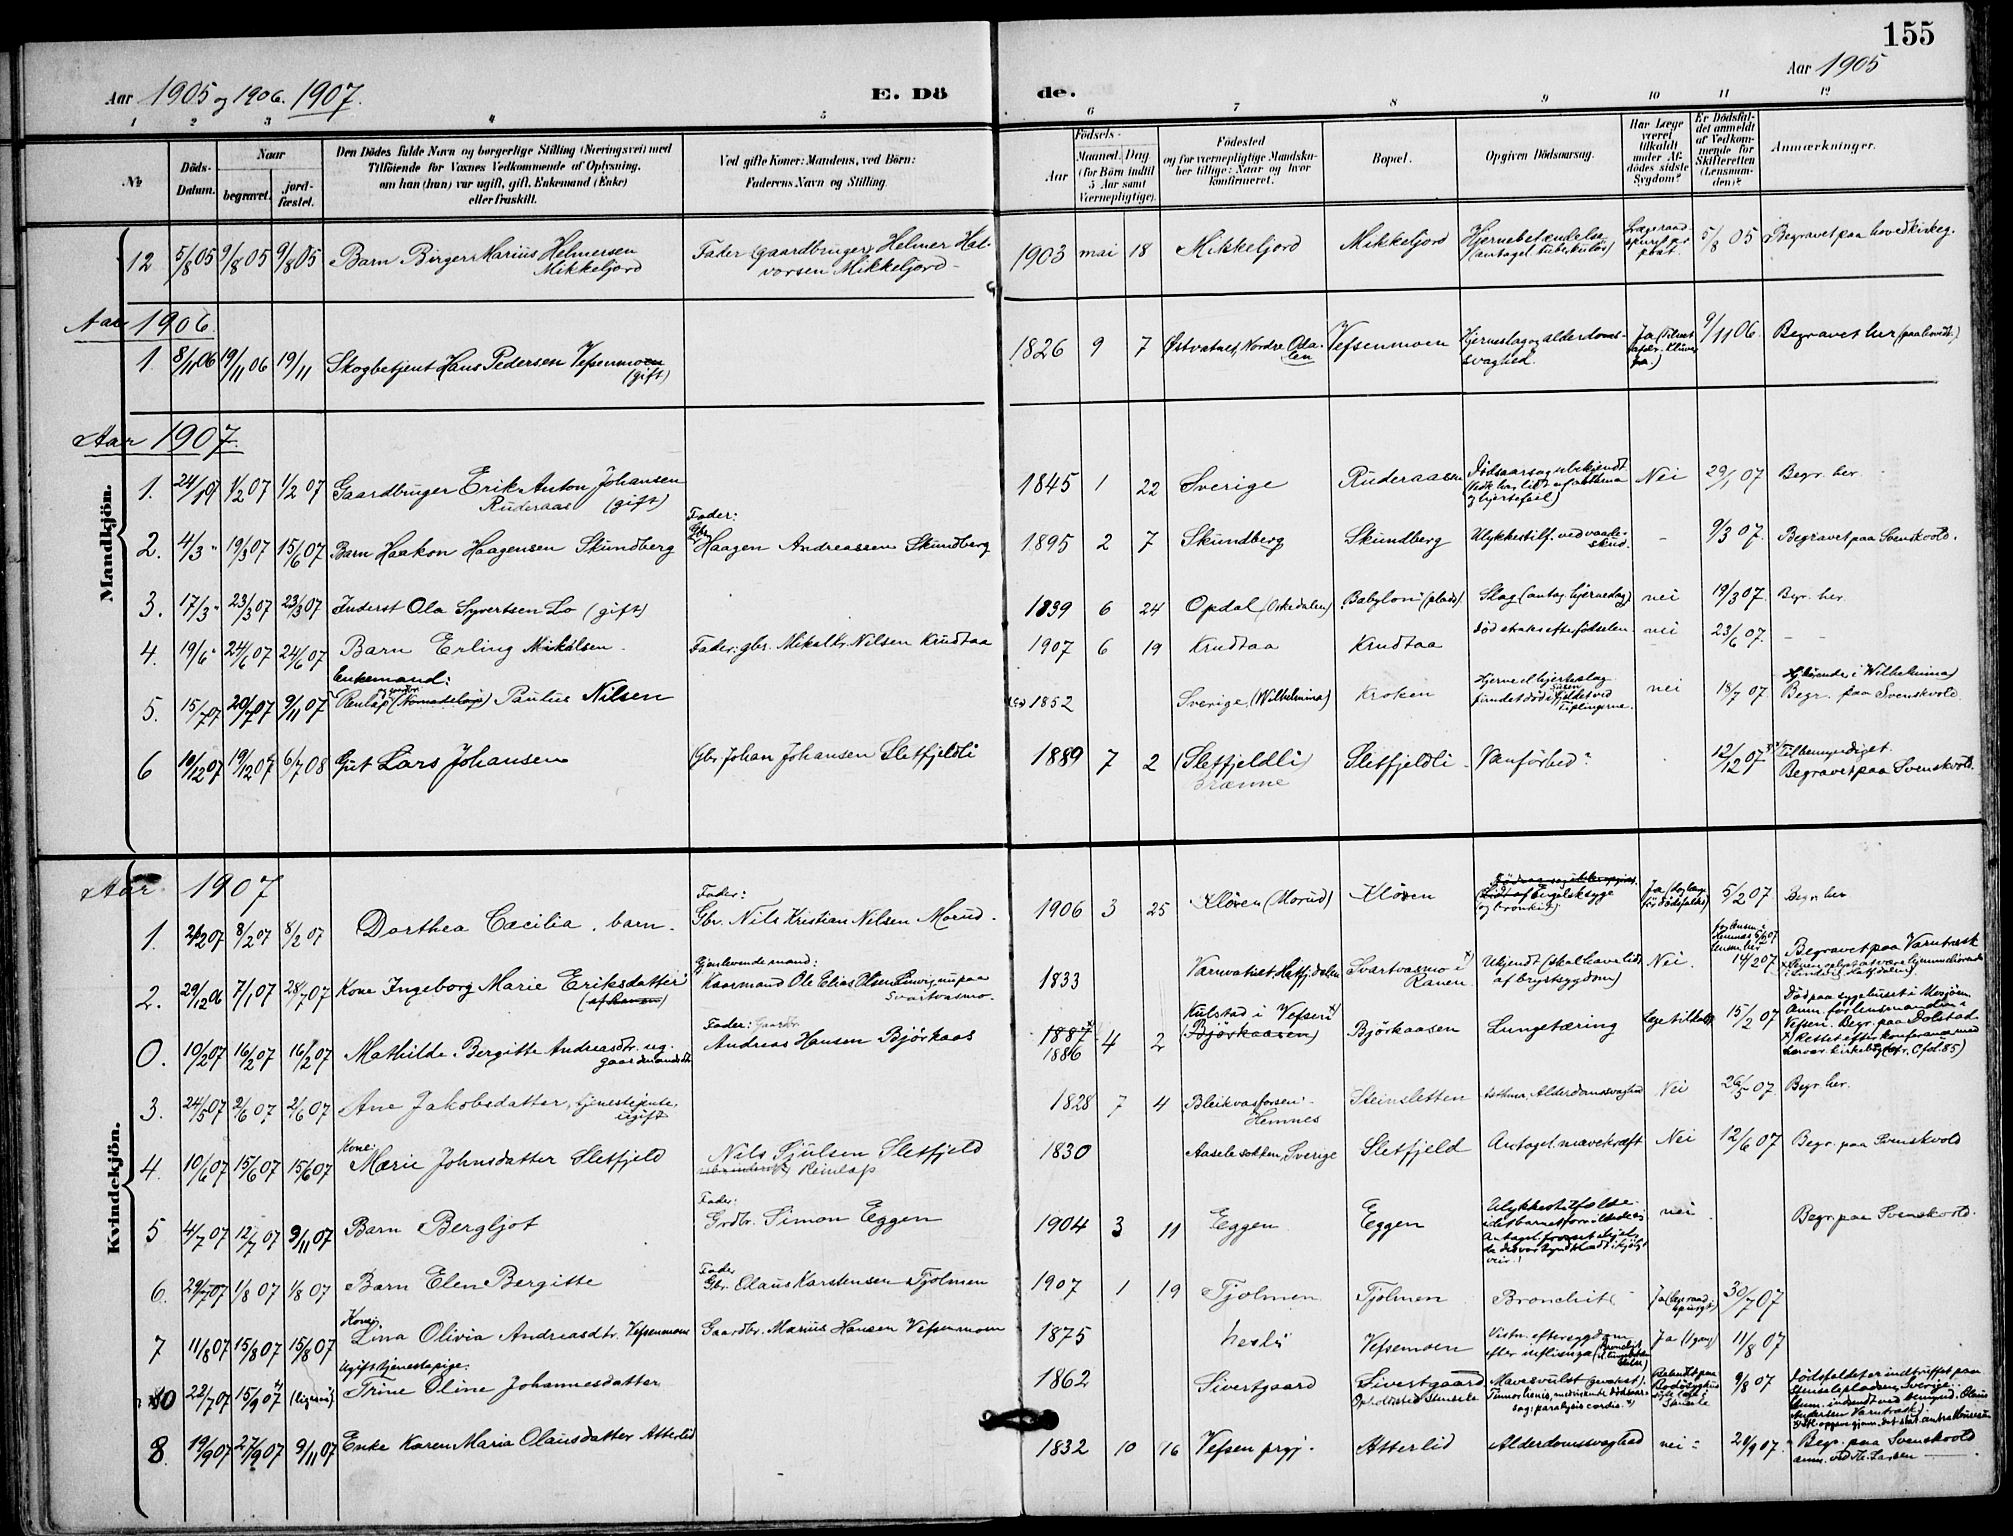 155
Aar 1905 og 1906. 1907.
E. Dö de.
Aar 1905
1 2 3 4 5 6 7 8 9 10 11 12
№
Döds-Datum.
Naar
begravet.
jord-fæstet.
Den Dödes fulde Navn og borgerlige Stilling (Næringsvei) med
Tilföiende for Voxnes Vedkommende af Oplysning,
om han (hun) var ugift, gift, Enkemand (Enke)
eller fraskilt.
Ved gifte Koner: Mandens, ved Börn:
Faderens Navn og Stilling.
Födsels-
Aar
Maaned.
Dag
(for Börn indtil
5 Aar samt
Værnepligtige).
Födested
og for værnepligtige Mandska-
ber tillige: Naar og hvor
konfirmeret.
Bopæl.
Opgiven Dödsaarsag.
Har Læge
været
tilkaldt
under Af-
dödes sidste
Sygdom?
Er Dödsfal-
det anmeldt
af Vedkom-
mende for
Skifteretten
(Lensman-
den)?
Anmærkninger.
Mandkjön.
12 5/8 05 9/8 05 9/8 05 Barn Birger Marius Helmersen
Mikkeljord
Fader gaardbruger Helmer Hal-
vorsen Mikkeljord
1903 mai 18 Mikkeljord Mikkeljord Hjernebetændelse
(antagel. tuberkuløs)
5/8 05 Begravet paa hovedkirkeg.
Aar 1906.
1. 8/11 06 19/11 06 19/11 Skogbetjent Hans Pedersen Vefsenmoen
(gift)
1826 9 7 Østvatnet, Nordre Oda-
len
Vefsenmoen Hjerneslag og alderdoms-
svaghed.
9/11 06. Begravet her
Aar 1907.
1. 24/1 07 1/2 07 1/2 07 Gaardbruger Erik Anton Johansen
Ruderaas (gift)
1845 1 22 Sverige Ruderaasen Dödsaarsag ubekjendt
(Vedk. har lidt af asthma
og hjertefeil)
Nei 29/1 07 Begr. her
2. 4/3 " 19/3 07 15/6 07 Barn Haakon Haagensen Skundberg
Fader:
Gbr. Haagen Andreassen Skundberg
1895 2 7 Skundberg Skundberg Ulykkestilf. ved vaade-
skud.
- 9/3 07. Begravet paa Svenskvold.
3. 17/3 " 23/3 07 23/3 07 Inderst Ola Syvertsen Lo (gift)
1839 6 24 Opdal (Orkedalen) Babylon (plads) Slag (antag. hjerneslag) nei 19/3 07. Begr. her.
4. 19/6 " 24/6 07 24/6 07 Barn Erling Mikalsen.
Fader: gbr. Mikal Kr. Nilsen Krudtaa
1907 6 19 Krudtaa Krudtaa Död straks efter fødselen nei 23/6 07. - -
Enkemand:
5. 15/7 07 20/7 07 9/11 07 Renlap (Nomadelap) Paulus Nilsen
1852 Sverige (Wilhelmina) Kroken Hjerne el. hjerteslag
fundet död i
Tiplingerne.
nei 18/7 07 Hjhörende i Wilhelmina)
Begr. paa Svenskvold
6 10/12 07 19/12 07 6/7 08 Gut Lars Johansen
Gbr Johan Johansen Sletfjeldli
1889 7 2 (Sletfjeldli)
Brænne
Sletfjeldli Vanförhed
12/12 07 Tilbemyndiget.
Begravet paa Svenskvold.
Kvindekjön.
Aar 1907
1. 2/2 07 8/2 07 8/2 07 Dorthea Cæcilia, barn.
Fader:
Gbr. Nils Kristian Nilsen Morud.
1906 3 25 Klöven (Morud) Klöven
Död af Engelsksyge
og bronkit)
5/2 07 Begr. her
2. 29/12 06 7/1 07 28/7 07 Kone Ingeborg Marie Eriksdatter
Gjenlevende mand:
Kaarmand Ole Elias Olsen nu paa
Svartvasmo.
1833 Varnvatnet, Hatfj.dalen Svartvasmo i
Ranen
Ukjendt (skal have lidt
af brystsygdom)
Nei. 14/2 07 Begravet paa Varntræsk
0. 10/2 07 16/2 07 16/2 07 Mathilde Bergitte Andreasdtr. ug.
gaardmandsdtr
Fader: Gaardbr.
Andreas Hansen Bjørkaas
1887
1886 4 2 Kulstad i Vefsen
(Bjørkaasen)
Bjørkaasen Lungetæring 15/2 07
Död paa sygehuset i Mosjøen.
Anm. for lensmanden i
Vefsen. Begr. paa Dolstad
Rettet efter konferance med
3. 24/5 07 2/6 07 2/6 07 Ane Jakobsdatter, tjenestejente
ugift
1828 7 4 Bleikvasforsen
Hemnes
Steinsletten Asthma, Alderdomssvaghed Nei 26/5 07 Begr. her.
Kone:
4. 10/6 07 15/6 07 15/6 07 Marie Johnsdatter Sletfjeld
Nils Sjulsen Sletfjeld
Renlap
1830 Aasele sokken, Sverige Sletfjeld Antagel. mavekræft Nei 12/6 07 Begr. paa Svenskvold
5 4/7 07 12/7 07 9/11 07 Barn Bergljot
Fader:
Grdbr. Simon Eggen
1904 3 11 Eggen Eggen Ulykkestilfælde
nei Begr. paa Svenskvold.
6. 29/7 07 1/8 07 1/8 07 Barn Elen Bergitte
Fader
Gbr. Olaus Karstensen Tjolmen
1907 1 19 Tjolmen Tjolmen Bronchit 30/7 07
Kone:
7 11/8 07 15/8 07 15/8 07 Lina Olivia Andreasdtr. Vefsenmoen
Gaardbr. Marius Hansen Vefsenmoen
1875 Vefsenmoen
efter influensa
11/8 07
Ugift tjenestepige:
10 22/7 07 15/9 07 Trine Oline Johannesdatter
1862 Sivertgaard Sivertgaard
Opholdssted Stensele
Mavesvulst
paralysis cordis
9/8 07 Dödsfaldet er indtruffet paa
8. 19/9 07 27/9 07 9/11 07 Enke Karen Maria Olausdatter Atterlid
1832 10 16 Vefsen prgj. Atterlid Alderdomssvaghed nei 20/9 07. Begr. paa Svenskvold